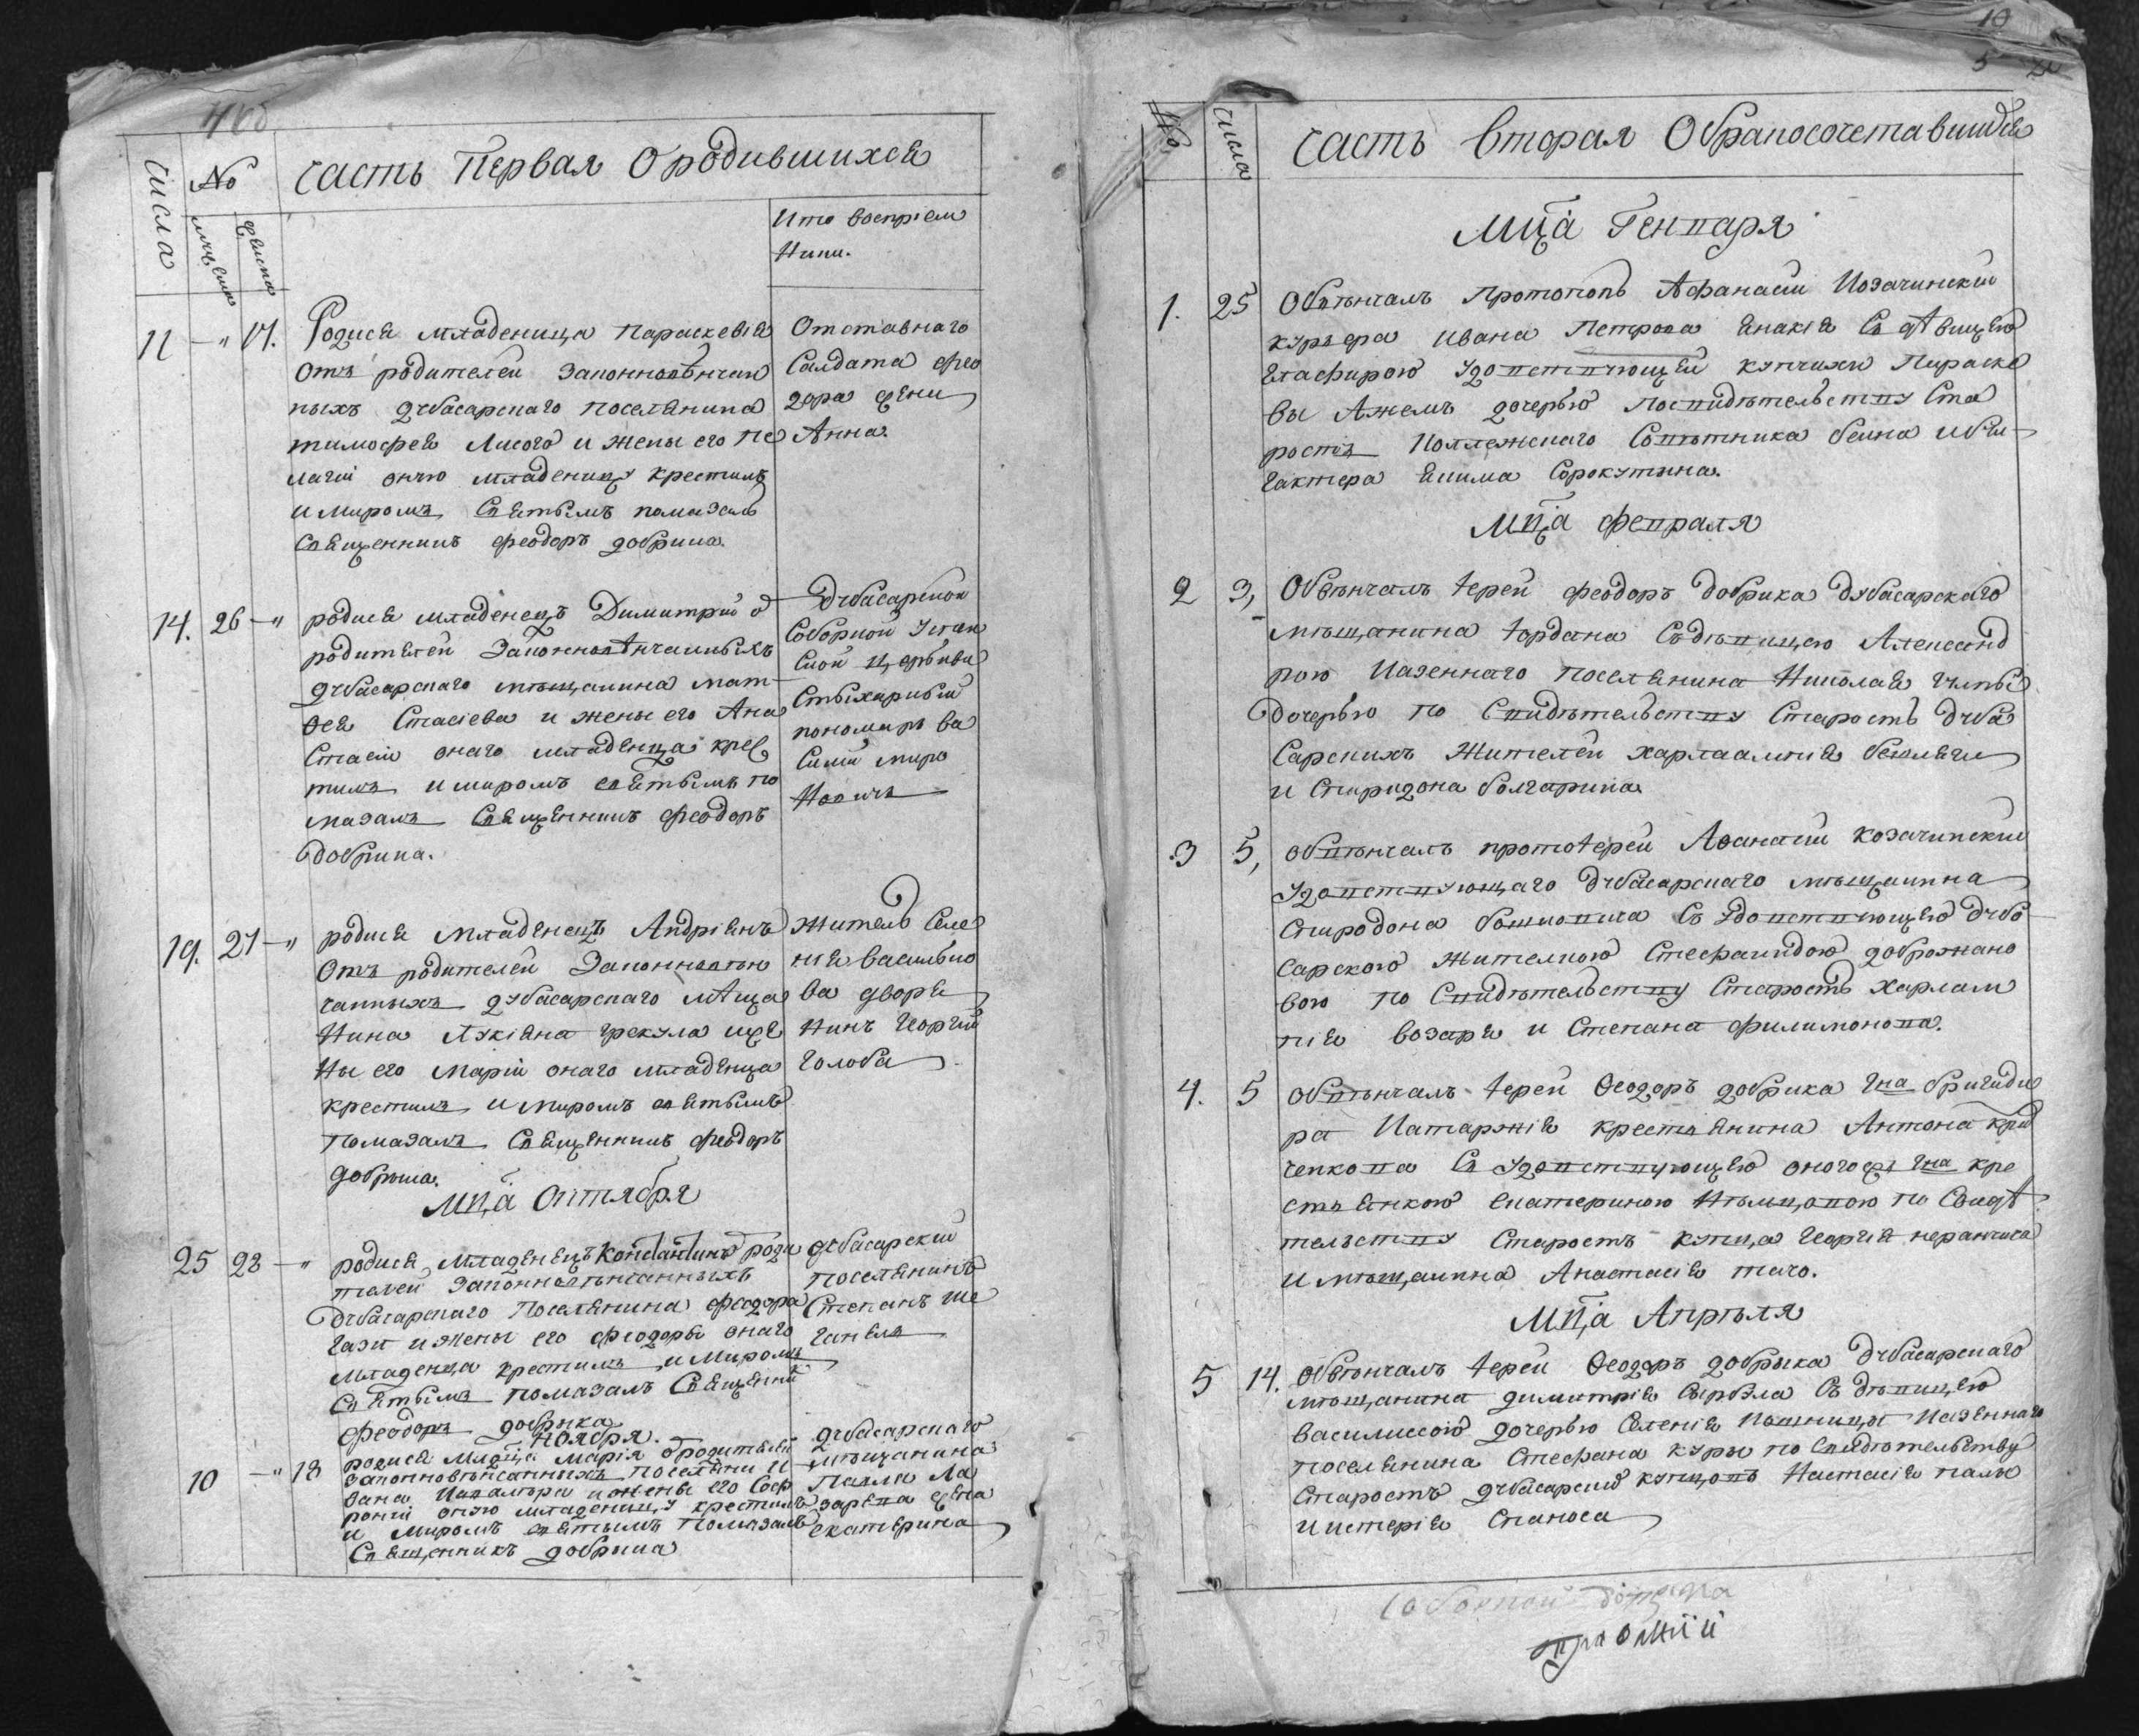 Числа
№
часть Первая О родившихся
Кто воспріем
ники.
11 — „ 17.
Родися младеница Параскевіа
Отъ родителей Законновѣнчан
ныхъ дубасарскаго поселянина
тимофея Лисого и жены его Пе
лагіи оную младеницу крестилъ
и миромъ Святымъ помазалъ
Священникъ феодоръ добрика.
Отставнаго
Салдата фео
дора жени
Анна.
14. 26 — „
родися младенецъ Димитрий о
родителей Законновѣнчанныхъ
дубасарскаго мѣщанина мат
ѳея Стасіева и жены его Ана
Стасіи онаго младенца крес
тилъ и миромъ святымъ по
мазалъ Священникъ феодоръ
добрика.
Дубасарской
Соборной Успен
Ской церькви
Стыхарный
пономаръ ва
Силий миро
новичъ
19. 27 — „
родися Младенецъ Андріянъ
Отъ родителей Законновѣн
чанныхъ дубасарскаго мѣща
нина Лукіяна грекула и же
ны его Маріи онаго младенца
крестилъ и миромъ святымъ
помазалъ Священникъ феодоръ
добрика.
житель Селе
нія василько
ва дворя
нинъ Георгий
Голоба
Мца Октября
25 28 — „
родися Младенецъ Константинъ роди
телей Законновѣнчанныхъ
дубасарскаго Поселянина феодора
Гази и жены его феодоры онаго
Младенца крестилъ и Миромъ
Святымъ помазалъ Священни
феодоръ добрика
дубасарский
поселянинъ
Степанъ
ноября.
10 — „ 18
родися Младца Марія Ородителей
Законновѣнчанныхъ поселяни И
вана и жены его Соф
роніи оную младеницу крестилъ
и Миромъ святымъ Помазалъ
Священникъ добрика
дубасарскаго
мѣщанина
Павла Ла
зарева жена
екатерина
10
5
№
Числа
часть вторая О бракосочетавшихся
Мца Генваря
1. 25 Обвѣнчалъ Протопопъ Афанасий Козачинский
курьера Ивана Петрова Съ дѣвицею
Глафирою Удовствующей купчихи Параске
вы Ажемъ дочерью посвидѣтельству Ста
ростъ Коллежскаго Совѣтника
гактера Екима Сорокутина.
Мца февраля
2 3, Обвѣнчалъ Іерей феодоръ добрика дубасарскаго
мѣщанина Іордана Съ дѣвицею Александ
рою Казеннаго поселянина Николая
дочерью по Свидѣтельству Старостъ дуба
Сарскихъ Жителей харлаампія
и Спиридона болгарина
3 5, обвѣнчалъ протоІерей Аѳанасій козачинский
Удовствующаго дубасарскаго мѣщанина
Спиродона Съ Удовствующею дубо
Сарскою жителкою Стефанидою доброжано
вою по Свидѣтельству Старостъ Харлам
пія возаря и Степана филимонова.
4. 5 обвѣнчалъ Іерей Ѳеодоръ добрика Гна бригади
ра Катаржія крестьянина Антона
ченкова Съ Удовствующею оногожъ Гна кре
стьянкою екатериною Нѣмцовою по Свидѣ
тельству Старостъ купца Георгія
и мѣщанина Анастасія таго.
Мца Апрѣля
5 14. обвѣнчалъ Іерей Ѳеодоръ добрыка дубасарскаго
мѣщанина димитрія Сырбла Съ дѣвицею
василиссою дочерью Селенія Казеннаго
поселянина Стефана куры по Свидѣтельству
Старостъ дубасарскихъ купцовъ Настасія пали
и истерія Спаноса